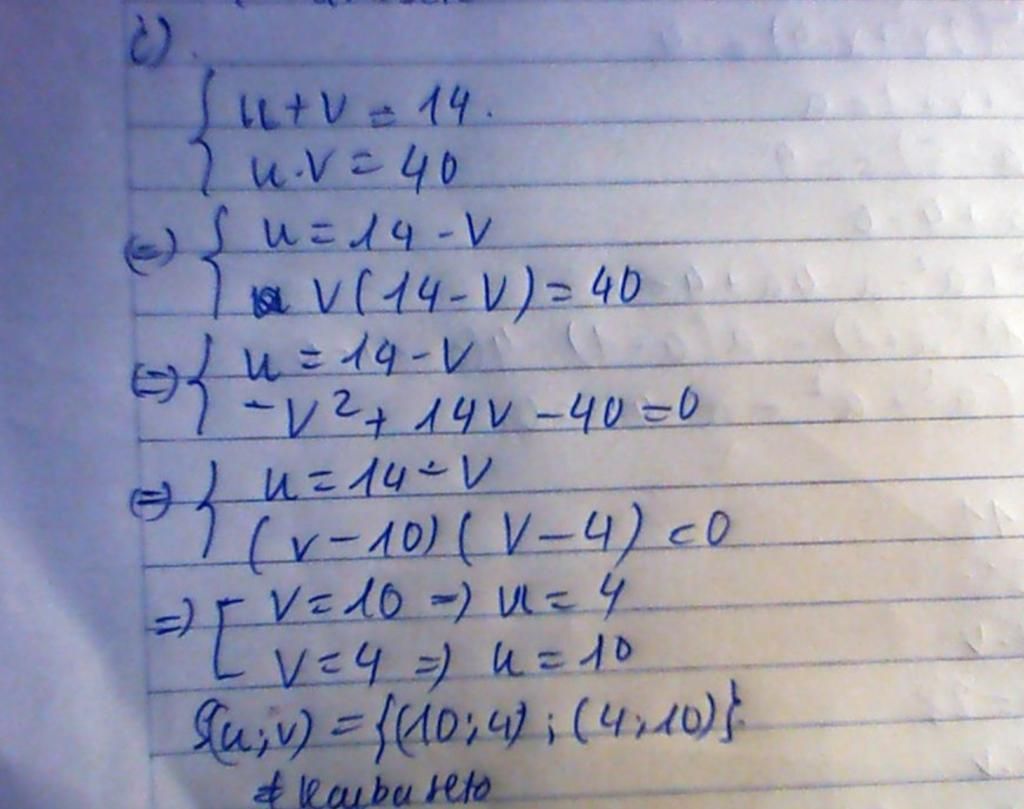 c)
{ u + v = 14.
u.v = 40
(=) { u = 14 - v
v(14 - v) = 40
(=) { u = 14 - v
-v² + 14v - 40 = 0
(=) { u = 14 - v
(v - 10)(v - 4) = 0
=) [ v = 10 =) u = 4
v = 4 =) u = 10
S(u;v) = {(10;4);(4;10)}.